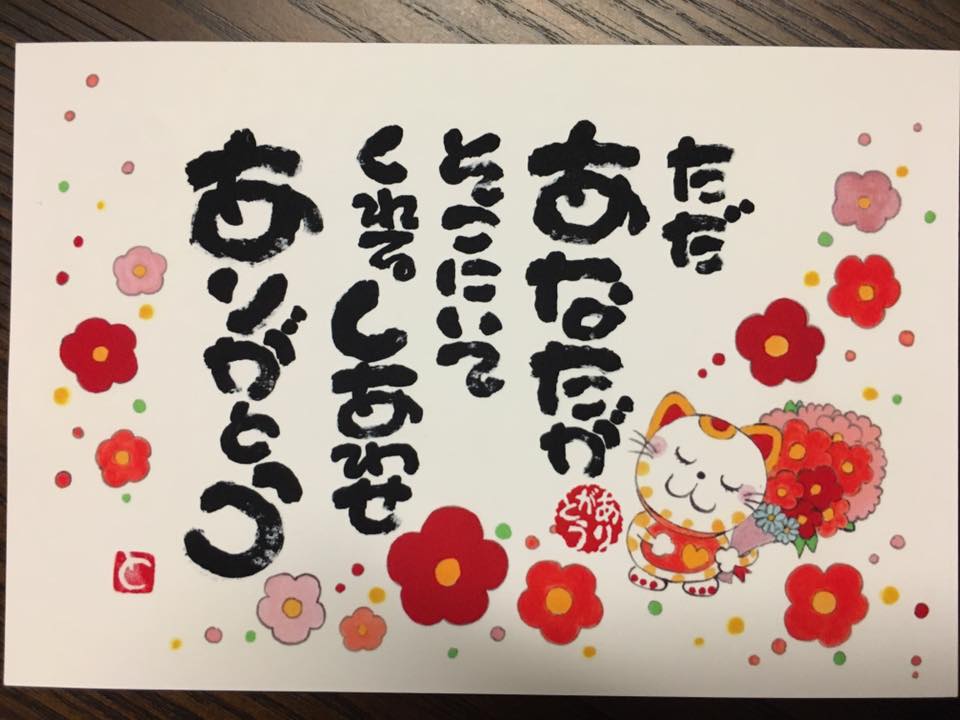 ただ
あなたが
そこにいて
くれる。しあわせ
ありがとう
ありがとう